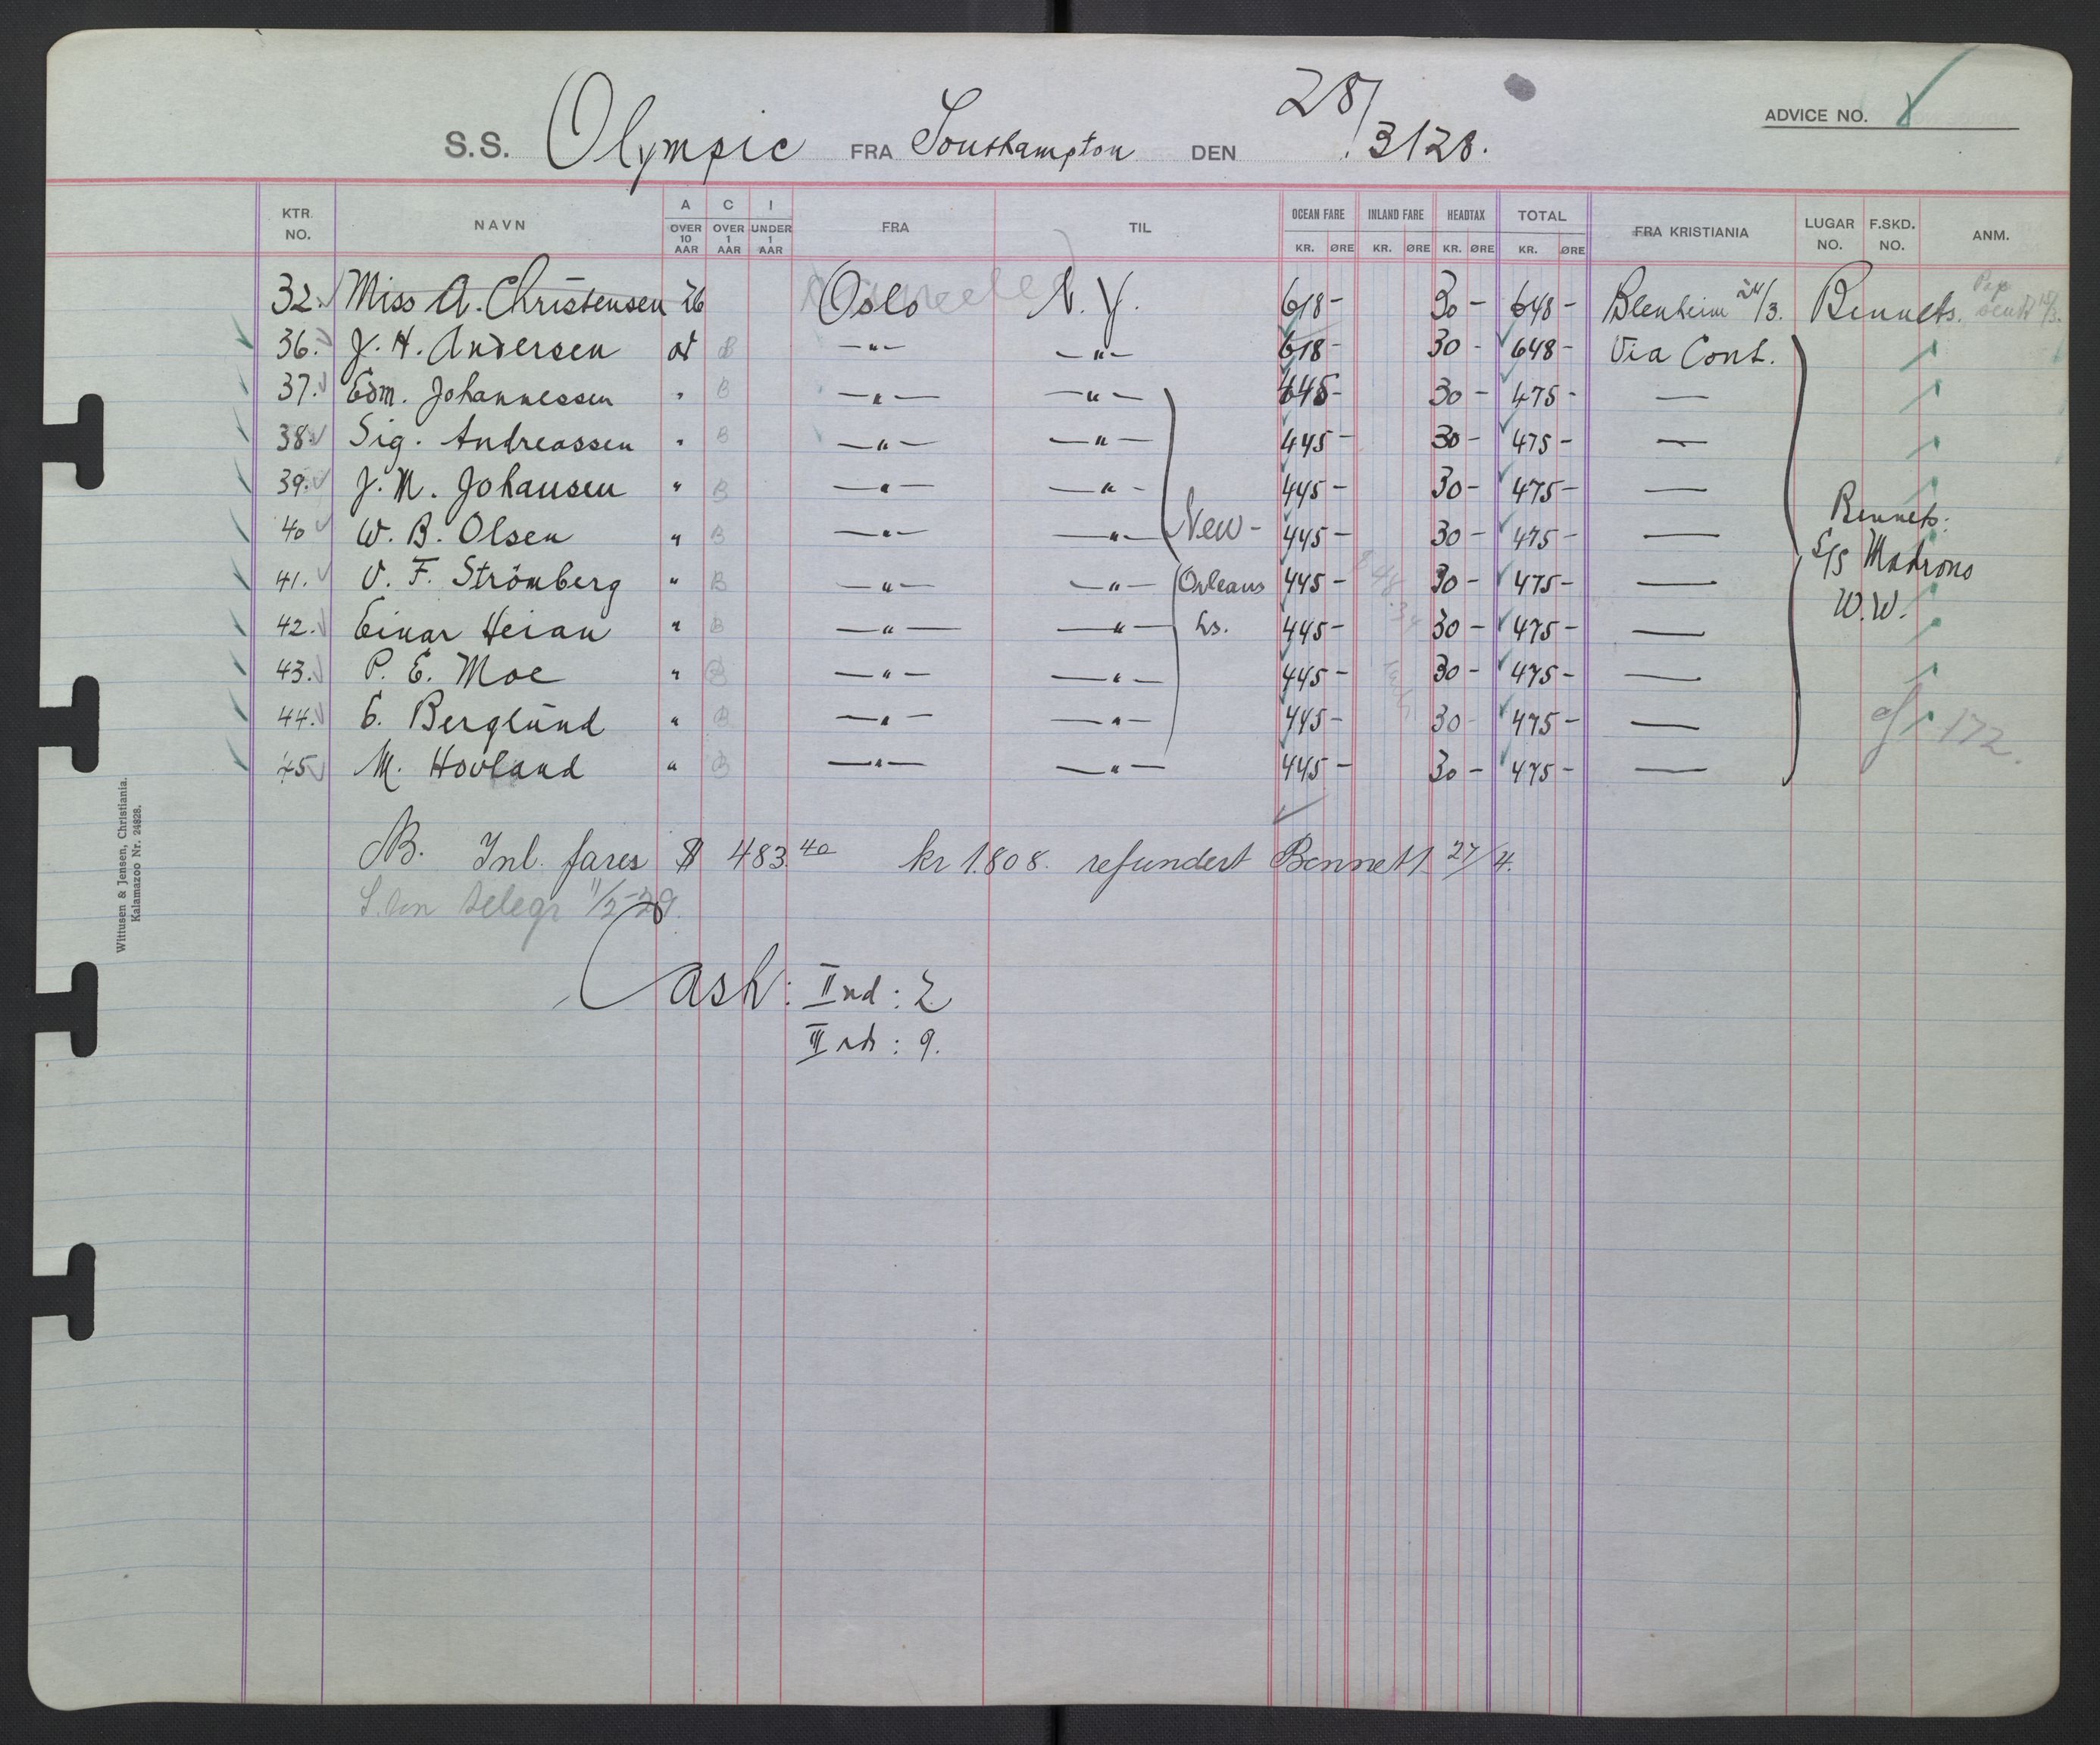 28/
S.S. Olympic FRA Southampton DEN 3/28.
ADVICE NO.
KTR. NO. NAVN A OVER 10 AAR C OVER 1 AAR I UNDER 1 AAR FRA TIL OCEAN FARE KR. ØRE INLAND FARE KR. ØRE HEADTAX KR. ØRE TOTAL KR. ØRE FRA KRISTIANIA LUGAR NO. F.SKD. NO. ANM.
32. Miss A. Christensen 26 Oslo N.Y. 618- 30- 648- Blenheim 24/3. Bennets.
36. J. H. Andersen ad B -"- -"- 618- 30- 648- Via Cont.
37. Edm. Johannessen " B -"- -"- 445- 30- 475- —
38. Sig. Andreassen " B -"- -"- 445- 30- 475- —
39. J. M. Johansen " B -"- -"- 445- 30- 475- —
40 W. B. Olsen " B -"- -"- New- 445- 30- 475- — Bennets:
41. V. F. Strömberg " B -"- -"- Orleans 445- 30- 475- — S/S Madrono
42. Einar Heian " B -"- -"- Ls. 445- 30- 475- — W.W.
43. P. E. Moe " B -"- -"- 445- 30- 475- —
44. E. Berglund " B -"- -"- 445- 30- 475- — 172.
45 M. Hovland " B -"- -"- 445- 30- 475- —
NB. Inl. fares $ 483.40 kr 1.808. refundert Bennett 27/4.
telegr
Cash: IInd: 2
IIIrd: 9.
Wittusen & Jensen, Christiania.
Kalamazoo Nr. 24828.